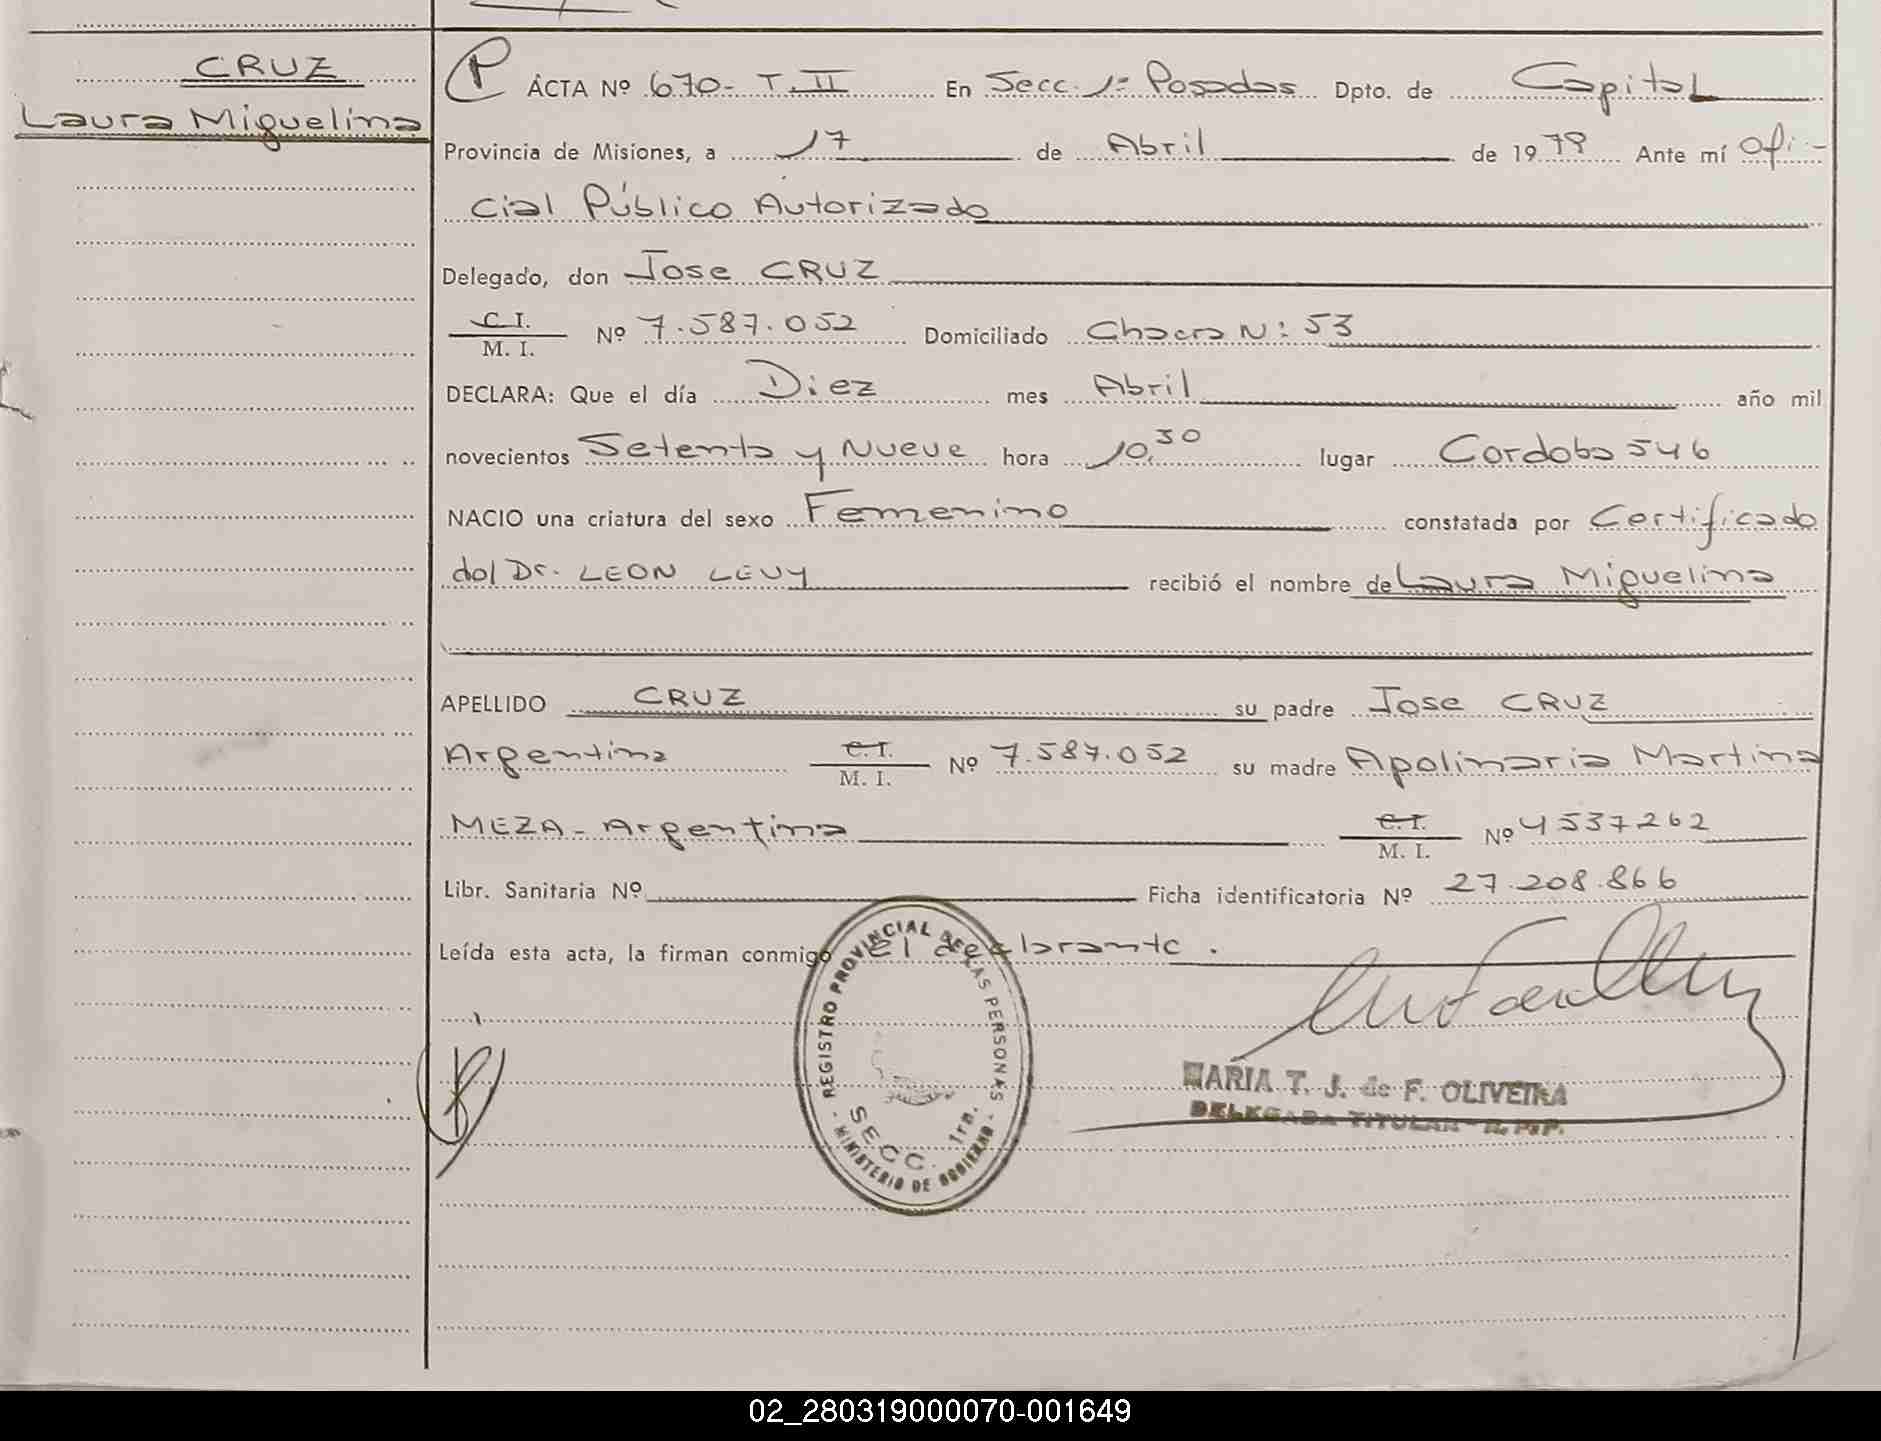 CRUZ
Laura Miguelina
P ACTA Nº 670- T. II En Secc. 1ª Posadas Dpto. de Capital
Provincia de Misiones, a 17 de Abril de 1979 Ante mí Ofi-
cial Público Autorizado
Delegado, don Jose CRUZ
C. I.
M. I. Nº 7.587.052 Domiciliado Chacra N: 53
DECLARA: Que el día Diez mes Abril año mil
novecientos Setenta y Nueve hora 10,30 lugar Cordoba 546
NACIO una criatura del sexo Femenino constatada por Certificado
del Dr. LEON LEVY recibió el nombre de Laura Miguelina
APELLIDO CRUZ su padre Jose CRUZ
Argentina C. I. M. I. Nº 7.587.052 su madre Apolinaria Martina
MEZA - Argentina C. I. M. I. Nº 4537262
Libr. Sanitaria Nº Ficha identificatoria Nº 27.208.866
Leída esta acta, la firman conmigo el declarante.
REGISTRO PROVINCIAL DE LAS PERSONAS
SECC. 1ra.
MINISTERIO DE GOBIERNO
MARIA T. J. de F. OLIVEIRA
DELEGADA TITULAR - R. P. P.
02_280319000070-001649